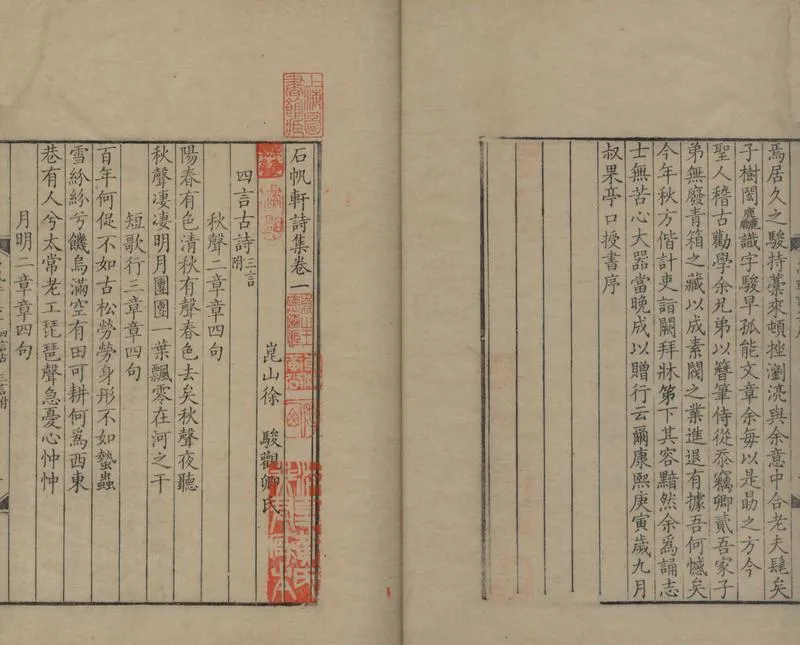 焉居久之駿持藁來頓挫瀏漓與余意中合老夫髦矣
子樹閎麤識字駿早孤能文章余每以是勗之方今
聖人稽古勸學余兄弟以簪筆侍從忝竊卿貳吾家子
弟無廢青箱之藏以成素閥之業進退有據吾何憾矣
今年秋方偕計吏詣闕拜牀第下其容黯然余爲誦志
士無苦心大器當晚成以贈行云爾康熙庚寅歲九月
叔果亭口授書序
上海圖
書館藏
石帆軒詩集卷一
崑山徐 駿觀卿氏
四言古詩 三言附
秋聲二章章四句
陽春有色清秋有聲春色去矣秋聲夜聽
秋聲凄凄明月團團一葉飄零在河之干
短歌行三章章四句
百年何促不如古松勞勞身形不如蟄蟲
雪紛紛兮饑烏滿空有田可耕何爲西東
巷有人兮太常老工琵琶聲急憂心忡忡
月明二章章四句